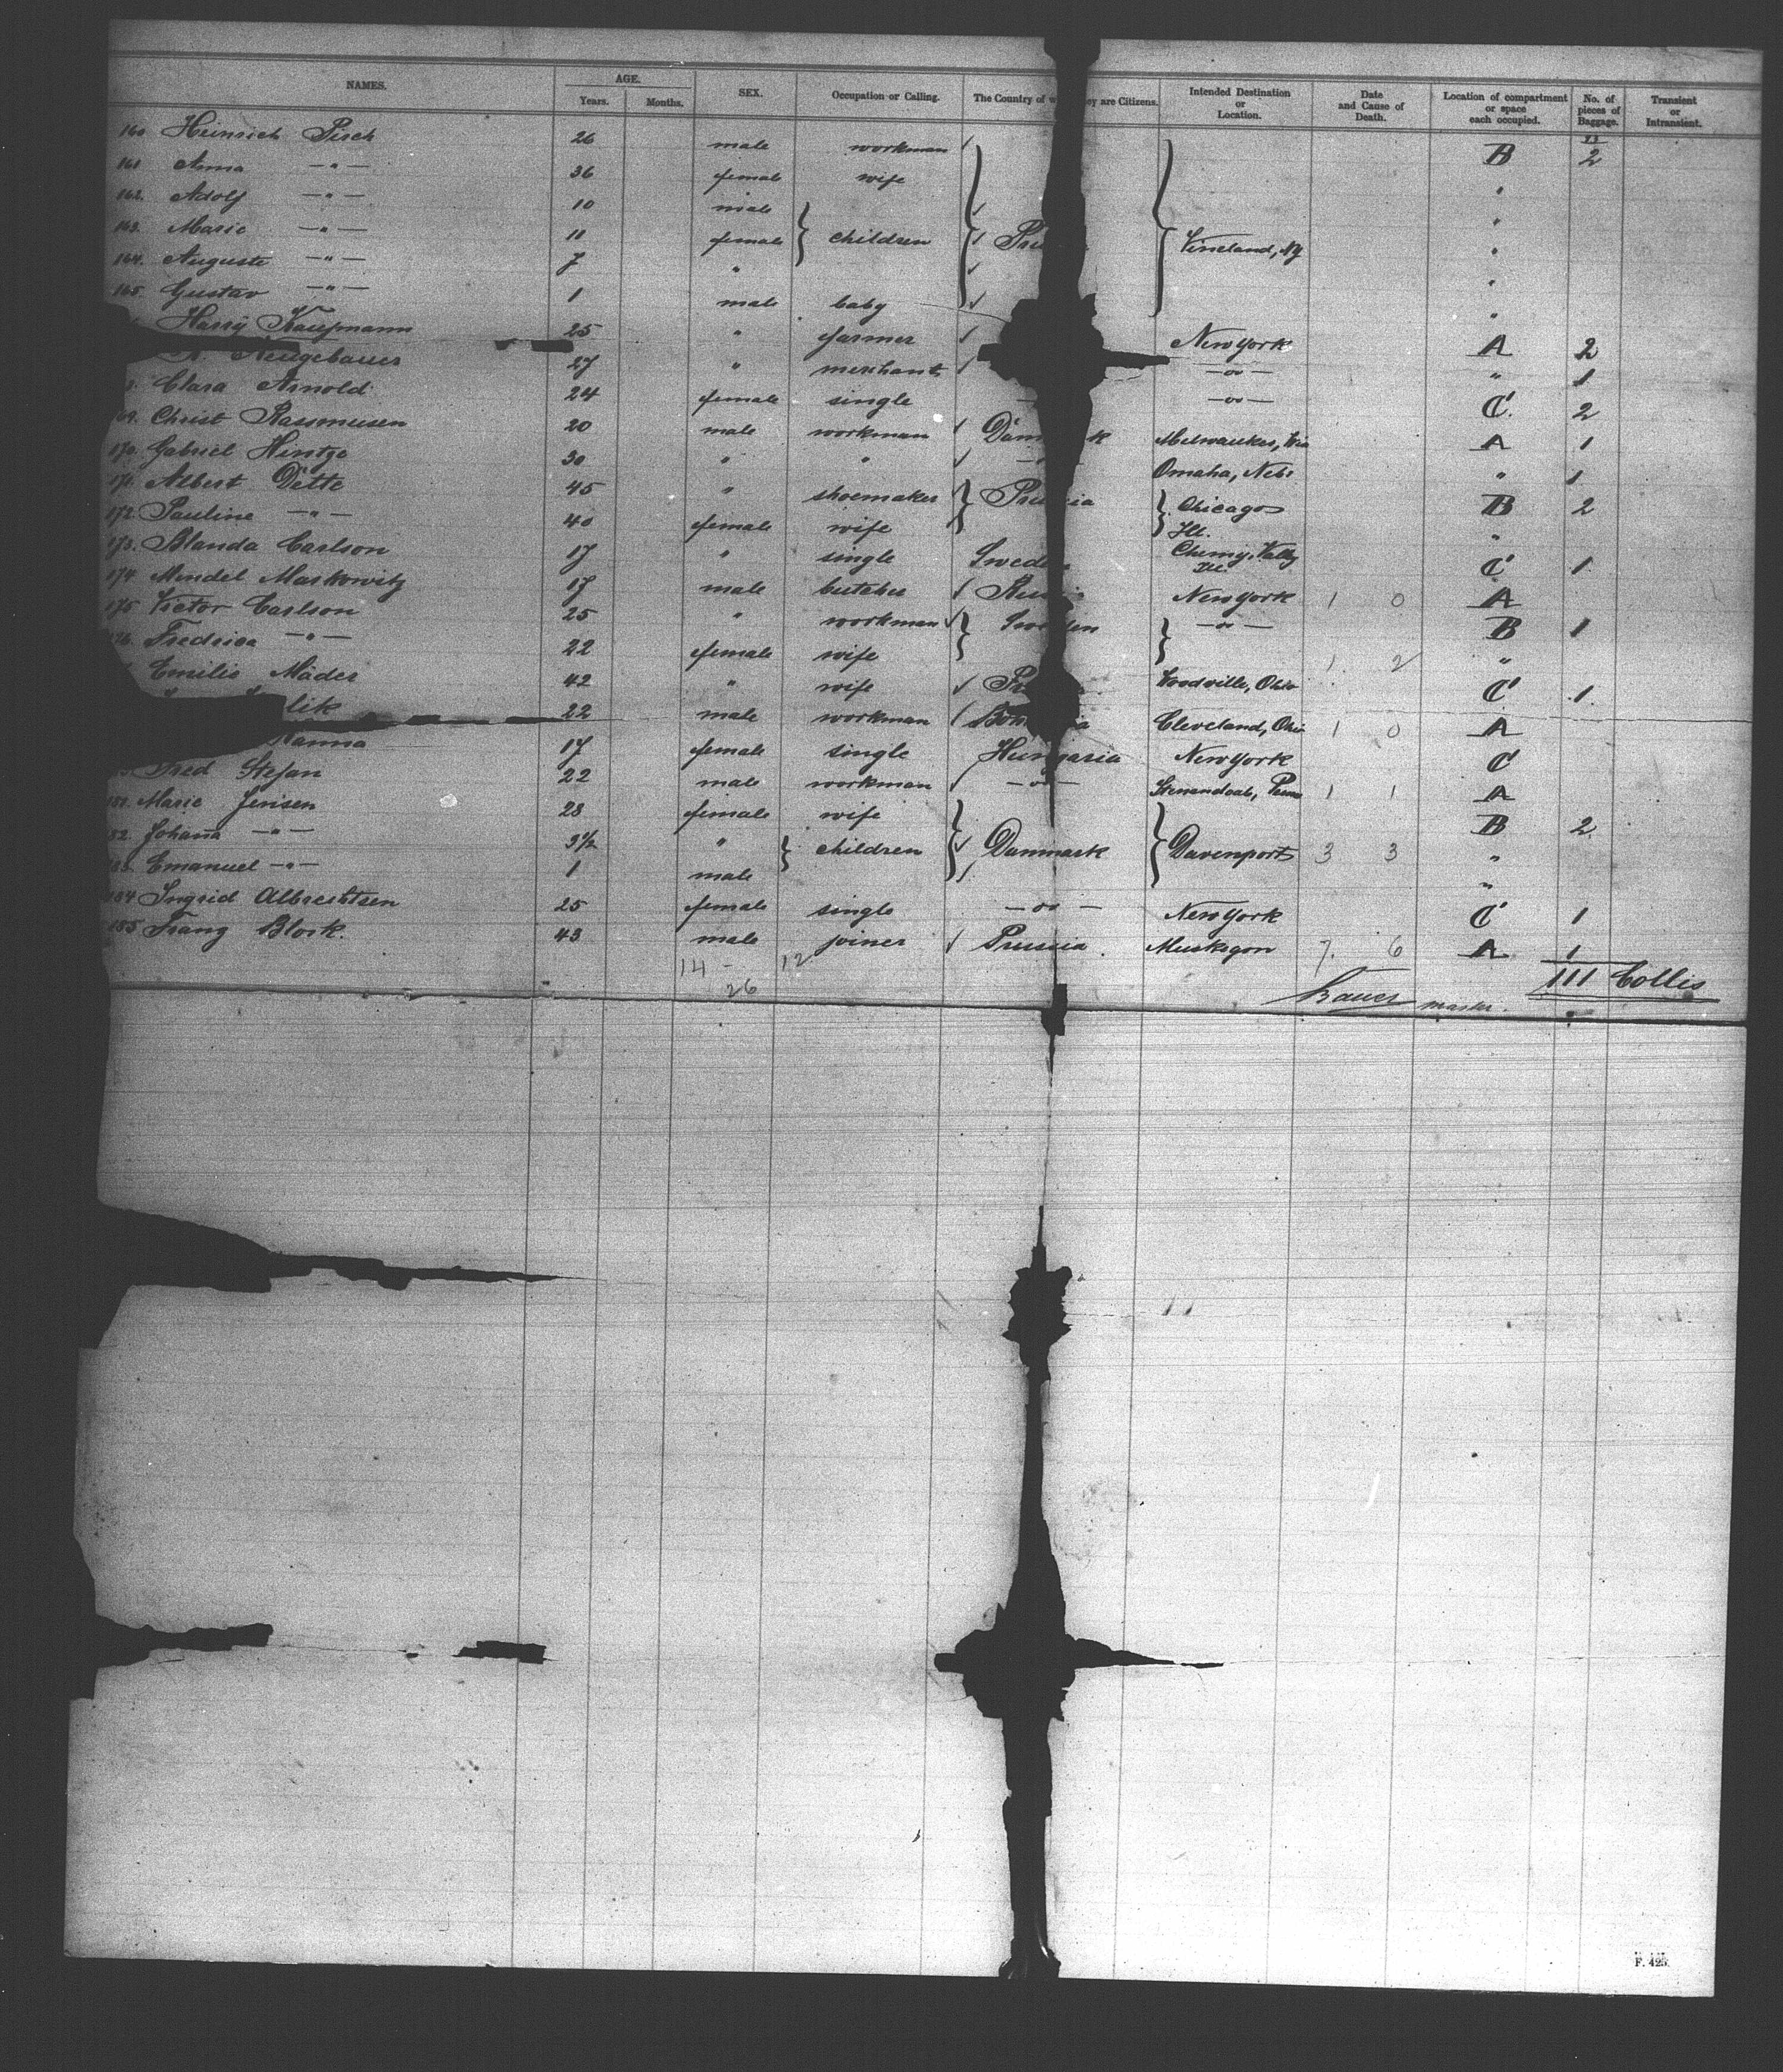 NAMES. AGE. Years. Months. SEX. Occupation or Calling. The Country of w ey are Citizens. Intended Destination or Location. Date and Cause of Death. Location of compartment or space each occupied. No. of pieces of Baggage. Transient or Intransient.
160 Heinrich Pisch 26 male workman B 2
161 Anna —"— 36 female wife "
162. Adolf —"— 10 male "
163. Marie —"— 11 female children Pru Vineland, NJ "
164. Auguste —"— 7 " "
165. Gustav —"— 1 male baby "
Harry Kaufmann 25 " farmer New York A 2
Neugebauer 27 " merchant —do— " 1
Clara Arnold 24 female single —do— C 2
69. Christ Rassmusen 20 male workman Dänm k Milwaukee, Wis A 1
170. Gabriel Hintze 30 " " Omaha, Nebr " 1
171. Albert Dette 45 " shoemaker Pru ia Chicago B 2
172. Pauline —"— 40 female wife Ill. "
173. Blanda Carlson 17 " single Swede Valley Ill. C 1
174 Mendel Markowitz 17 male butcher Rus New York 1 0 A
175 Victor Carlson 25 " workman Sw den —do— B 1
76. Fredrica —"— 22 female wife 1 2 "
Emilie Mäder 42 " wife Pr Woodville, Ohio C 1
lik 22 male workman Bo a Cleveland, Ohio 1 0 A
Hanna 17 female single Hungaria New York C
Fred Stefan 22 male workman —do— Shenandoah, Penn 1 1 A
181. Marie Jensen 28 female wife B 2
82. Johana —"— 3½ " children Danmark Davenport 3 3 "
183. Emanuel —"— 1 male "
184 Ingrid Albrechtsen 25 female single —do— New York C 1
185 Franz Block. 43 male joiner Prussia. Muskegon 7. 6 A 1
14 - 12
26
111 Collis
Bauer master.
F. 425.